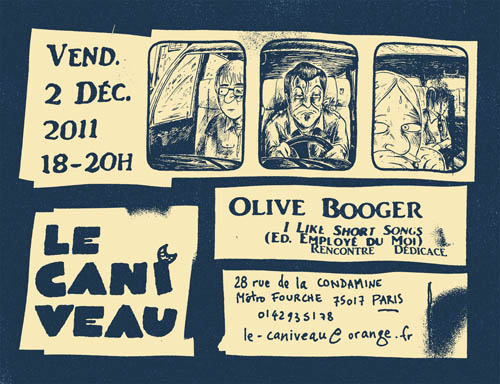 VEND.
2 DÉC.
2011
18-20H
LE
CANI
VEAU
OLIVE BOOGER
I LIKE SHORT SONGS
(ED. EMPLOYÉ DU MOI)
RENCONTRE DÉDICACE
28 rue de la CONDAMINE
Métro FOURCHE 75017 PARIS
0142935178
le-caniveau@orange.fr